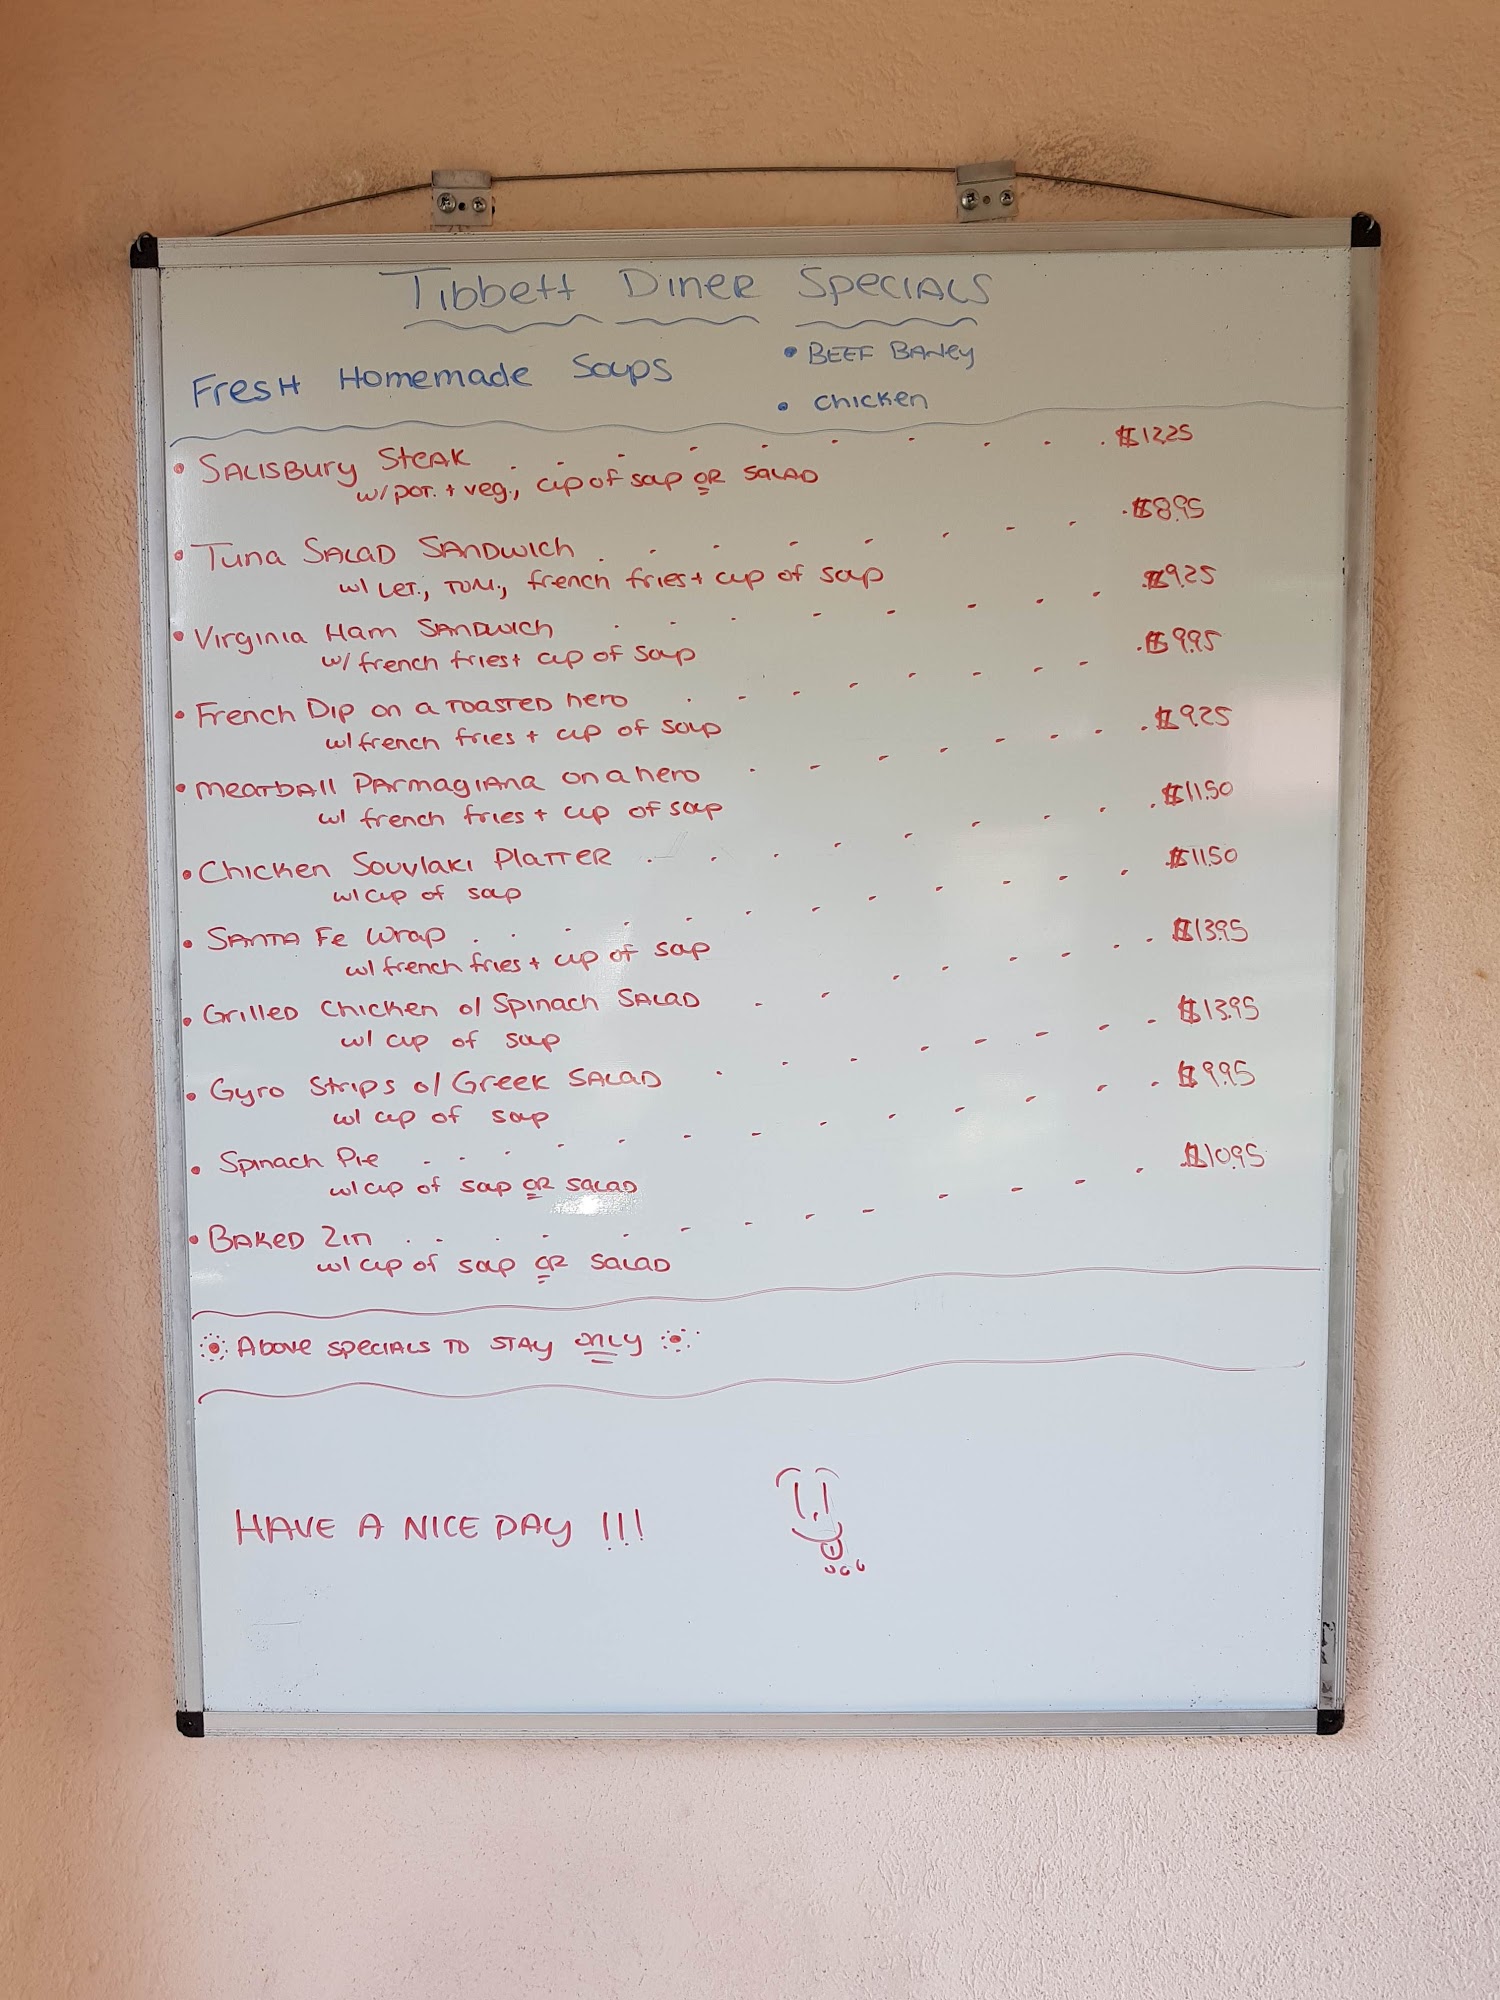 Tibbett Diner Specials
Fresh Homemade Soups
• Beef Barley
• Chicken
• Salisbury Steak $12.25
w/ pot. + veg., cup of soup or salad
• Tuna Salad Sandwich $8.95
w/ let., tom., french fries + cup of soup
• Virginia Ham Sandwich $9.25
w/ french fries + cup of soup
• French Dip on a toasted hero $9.95
w/ french fries + cup of soup
• Meatball Parmagiana on a hero $9.25
w/ french fries + cup of soup
• Chicken Souvlaki Platter $11.50
w/ cup of soup
• Santa Fe Wrap $11.50
w/ french fries + cup of soup
• Grilled Chicken o/ Spinach Salad $13.95
w/ cup of soup
• Gyro Strips o/ Greek Salad $13.95
w/ cup of soup
• Spinach Pie $9.95
w/ cup of soup or salad
• Baked Ziti $10.95
w/ cup of soup or salad
Above specials to stay only
HAVE A NICE DAY !!!